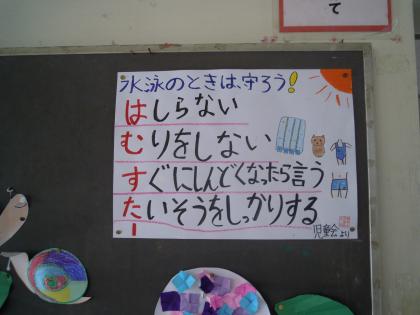 て
水泳のときは、守ろう!
はしらない
むりをしない
すぐにしんどくなったら言う
たいそうをしっかりする
ー
児童会より